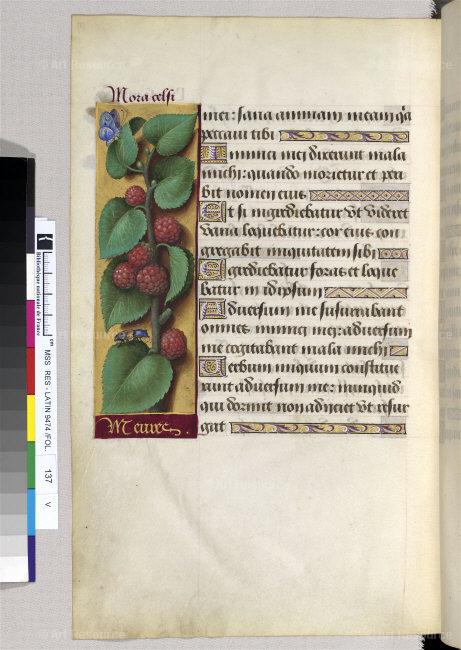 Mora celsi
mei: sana animam meam q̃a
peccaui tibi
Inimici mei dixerunt mala
michi: quando morietur et peri
bit nomen eius
Et si ingrediebatur vt videret
vana loquebatur: cor eius con
gregabit iniquitatem sibi
Egrediebatur foras et loque
batur in idipsum
Aduersum me susurrabant
omnes inimici mei: aduersum
me cogitabant mala michi
Verbum iniquum constitue
runt aduersum me: nunquid
qui dormit non adiiciet vt resur
gat
Meures.
Bibliothèque nationale de France
cm
MSS RES - LATIN 9474 /FOL.
137
V
© Art Resource
© Art Resource
© Art Resource